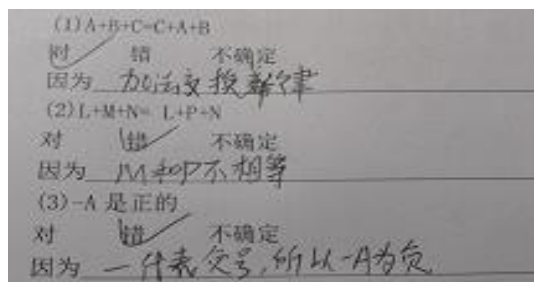 (1)A+B+C=C+A+B
对 错 不确定
因为 加法交换律
(2)L+M+N= L+P+N
对 错 不确定
因为 M和P不相等
(3)-A 是正的
对 错 不确定
因为 一代表负号,所以-A为负